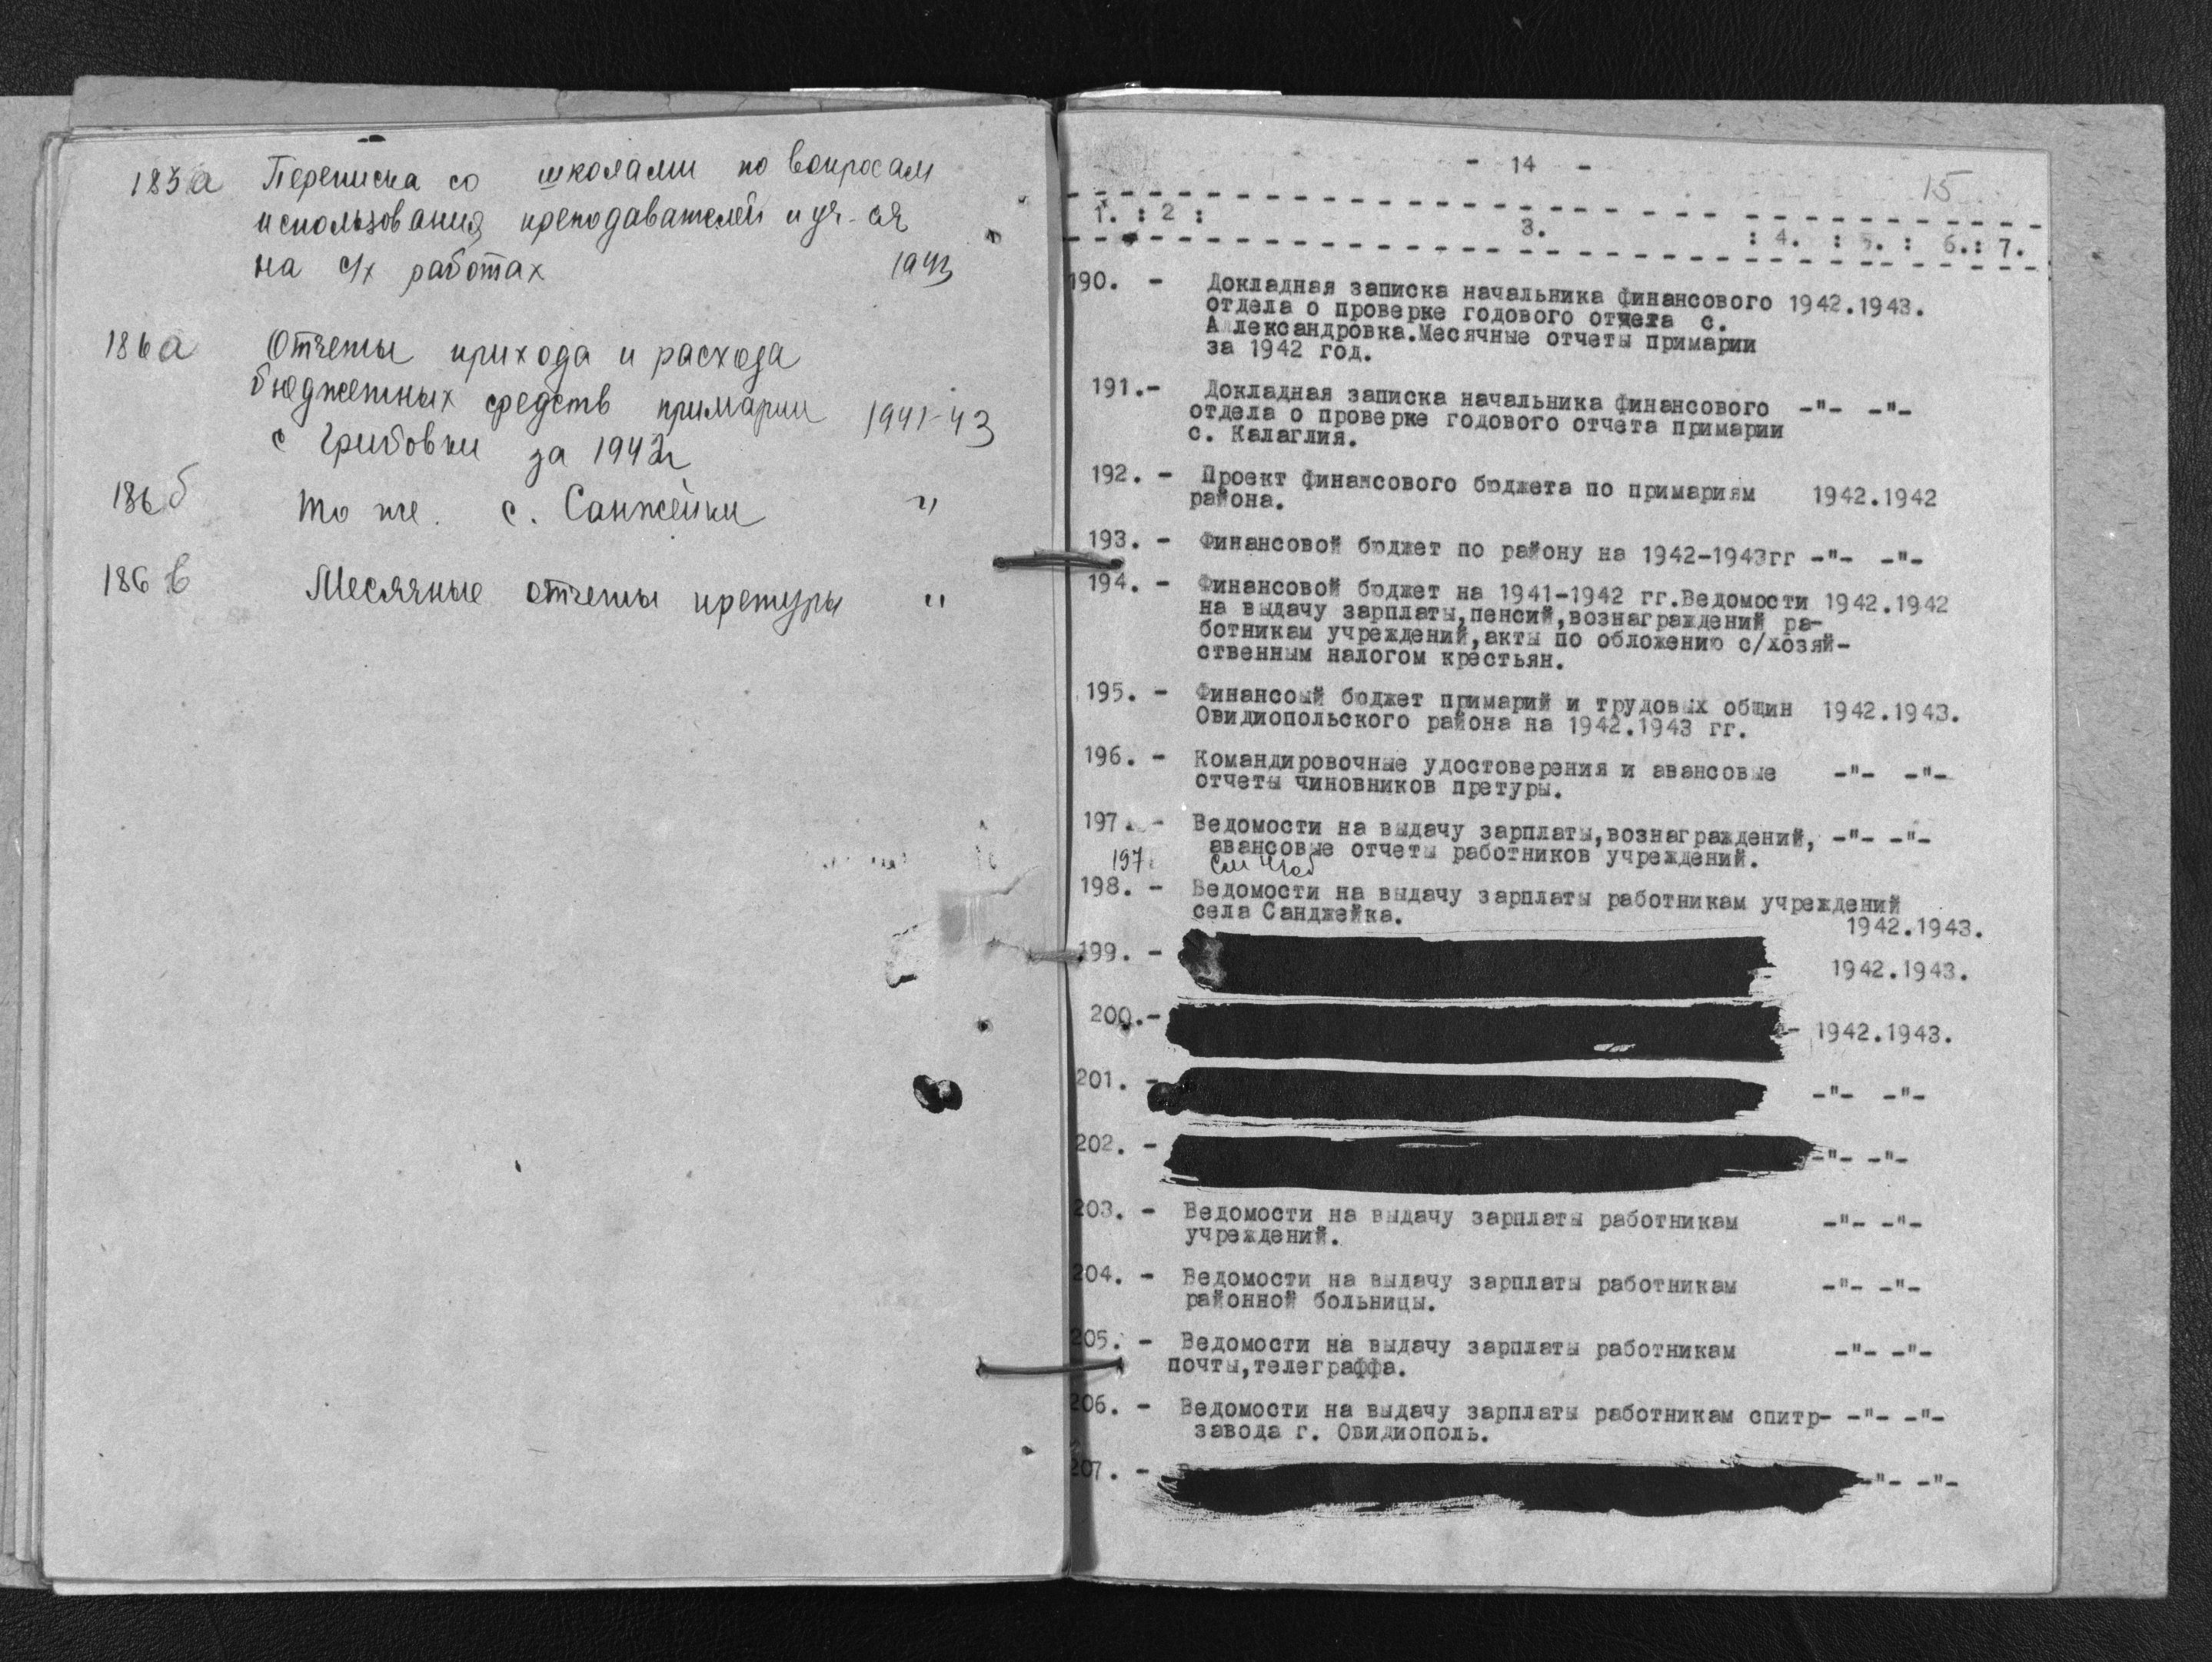 185а Переписка со школами по вопросам
использования преподавателей и уч-ся
на с/х работах 1943
186а Отчеты прихода и расхода
бюджетных средств примарии 1941-43
с Грибовки за 1942г
186б То же. с. Санжейки "
186в Месячные отчеты претуры "
- 14 -
15
1. : 2 : 3. : 4. : 5. : 6.: 7.
190. - Докладная записка начальника финансового 1942.1943.
отдела о проверке годового отчета с.
Александровка.Месячные отчеты примарии
за 1942 год.
191.- Докладная записка начальника финансового -"- -"-
отдела о проверке годового отчета примарии
с. Калаглия.
192. - Проект финансового бюджета по примариям 1942.1942
района.
193. - Финансовой бюджет по району на 1942-1943гг -"- -"-
194. - Финансовой бюджет на 1941-1942 гг.Ведомости 1942.1942
на выдачу зарплаты,пенсий,вознаграждений ра-
ботникам учреждений,акты по обложению с/хозяй-
ственным налогом крестьян.
195. - Финансоый бюджет примарий и трудовых общин 1942.1943.
Овидиопольского района на 1942.1943 гг.
196. - Командировочные удостоверения и авансовые -"- -"-
отчеты чиновников претуры.
197. - Ведомости на выдачу зарплаты,вознаграждений, -"- -"-
авансовые отчеты работников учреждений.
197
198. - Ведомости на выдачу зарплаты работникам учреждений
села Санджейка. 1942.1943.
199. - 1942.1943.
200.- - 1942.1943.
201. - -"- -"-
202. - -"- -"-
203. - Ведомости на выдачу зарплаты работникам -"- -"-
учреждений.
204. - Ведомости на выдачу зарплаты работникам -"- -"-
районной больницы.
205. - Ведомости на выдачу зарплаты работникам -"- -"-
почты,телеграффа.
206. - Ведомости на выдачу зарплаты работникам спитр- -"- -"-
завода г. Овидиополь.
207. - -"- -"-